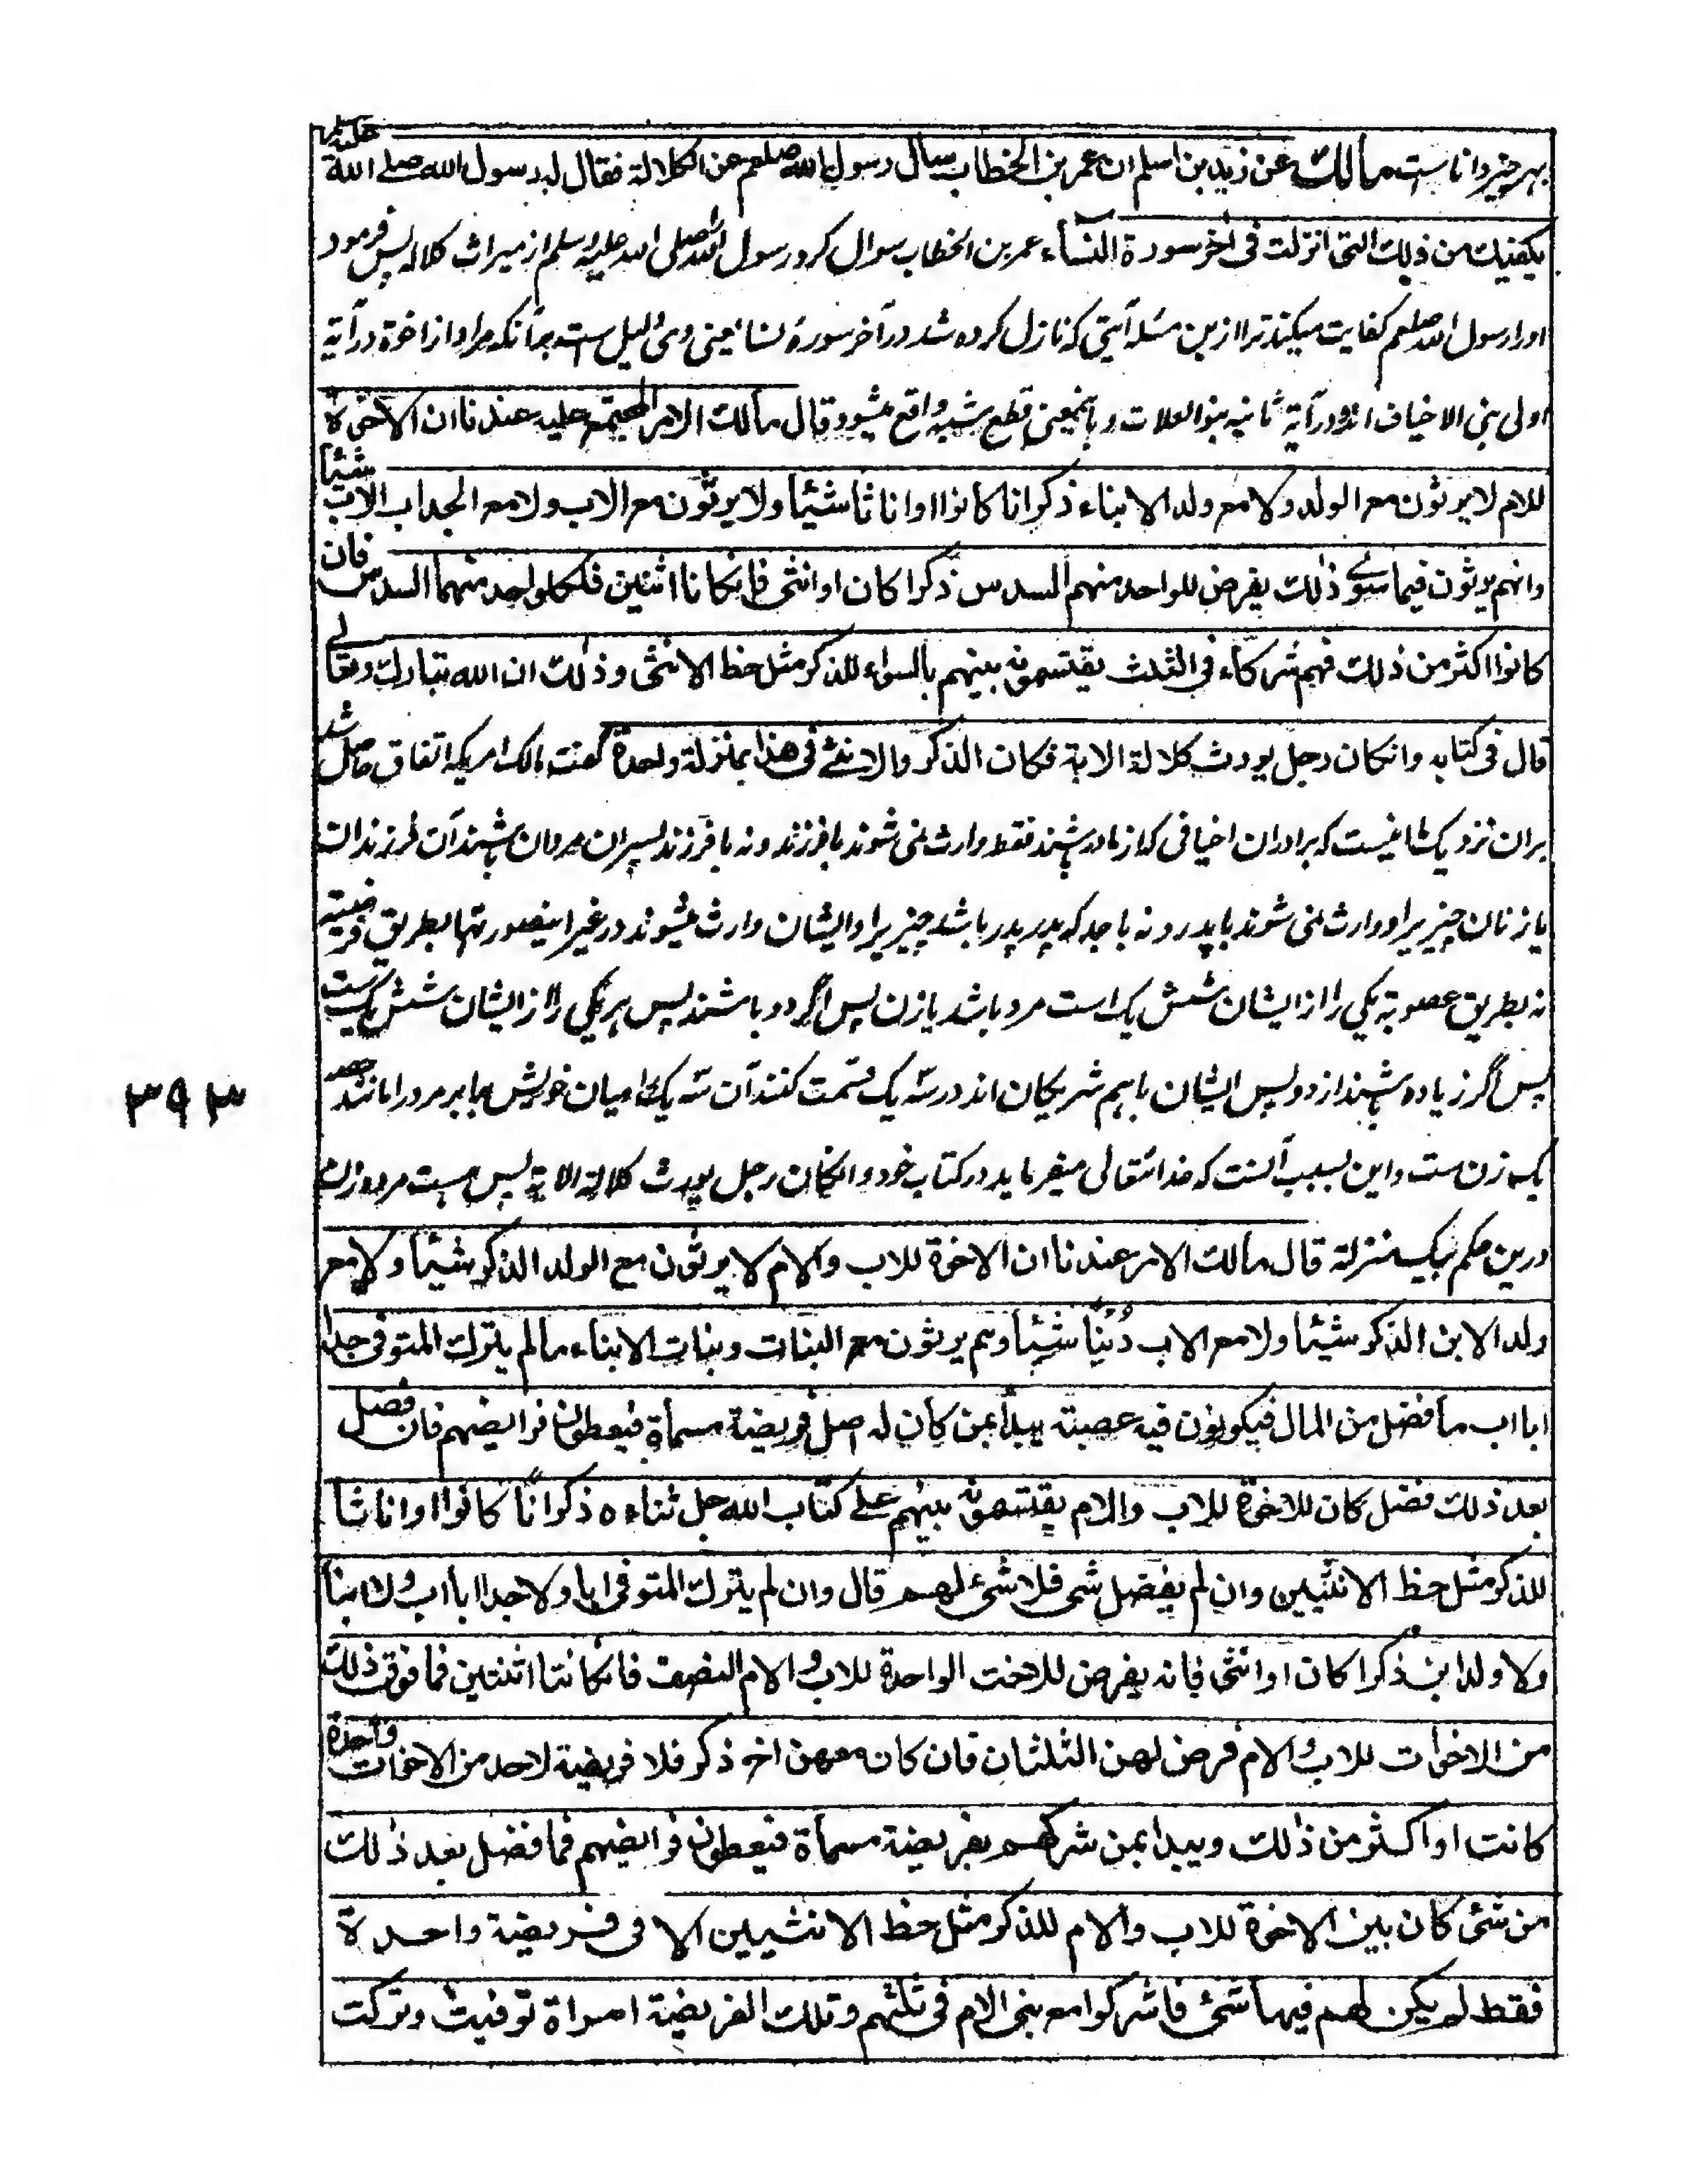 بهر چیز دانا ست مالك عن زيد بن اسلم ان عمر بن الخطاب سأل رسول الله صلعم عن الكلالة فقال له رسول الله صلى الله عليه وسلم
يكفيك من ذلك التى انزلت فى اخر سورة النساء عمر بن الخطاب سوال کرد رسول الله صلی الله علیه وسلم از میراث کلاله پس فرمود
اورا رسول الله صلعم کفایت میکند ترا ازین مسئله آیتی که نازل کرده شد در آخر سورهٔ نسا یعنی وی دلیل است برآنکه مراد از اخوة در آیة
اولی بنی الاخیاف اند و در آیة ثانیه بنو العلات و باینمعنی قطع شبه واقع میشود قال مالك الامر المجتمع عليه عندنا ان الاخوة
للام لا يرثون مع الولد ولا مع ولد الابناء ذكرانا كانوا او اناثا شيئا ولا يرثون مع الاب ولا مع الجد اب الاب شيئا
وانهم يرثون فيما سوى ذلك يفرض للواحد منهم السدس ذكرا كان او انثى فان كانا اثنين فلكل واحد منهما السدس فان
كانوا اكثر من ذلك فهم شركاء فى الثلث يقتسمونه بينهم بالسواء للذكر مثل حظ الانثى وذلك ان الله تبارك وتعالى
قال فى كتابه وان كان رجل يورث كلالة الاية فكان الذكر والانثى فى هذا بمنزلة واحدة گفت مالک امریکه اتفاق حاصل شد
بران نزدیک ما نیست که برادران اخیافی که از مادر باشند فقط وارث نمی شوند با فرزند و نه با فرزند پسران مردان باشند آن فرزندان
یا زنان چیزیرا و وارث نمی شوند با پدر و نه با جد که پدر پدر باشد چیزیرا و ایشان وارث میشوند در غیر اینصورتها بطریق فرضیته
نه بطریق عصوبة یکی را از ایشان شش یک است مرد باشد یا زن پس اگر دو باشند پس هر یکی را از ایشان شش یک ست
پس اگر زیاده باشند از دو پس ایشان باهم شریکان اند در سه یک قسمت کنند آن سه یک را میان خویش برابر مرد را مانند حصه
یک زن ست و این بسبب آنست که خدا تعالی میفرماید در کتاب خود وان كان رجل يورث كلالة الاية پس هست مرد و زن
درین حکم بیک منزلة قال مالك الامر عندنا ان الاخوة للاب والام لا يرثون مع الولد الذكر شيئا ولا مع
ولد الابن الذكر شيئا ولا مع الاب دُنيا شيئا وهم يرثون مع البنات وبنات الابناء ما لم يترك المتوفى جدا
ابا اب ما فضل من المال فيكونون فيه عصبته يبدأ بمن كان له اصل فريضة مسماة فيعطون فرايضهم فان فضل
بعد ذلك فضل كان للاخوة للاب والام يقتسمونه بينهم على كتاب الله جل ثناءه ذكرانًا كانوا او اناثا
للذكر مثل حظ الانثيين وان لم يفضل شى فلا شىء لهم قال وان لم يترك المتوفى ابا ولا جدا ابا اب ولا ابنا
ولا ولد ابن ذكرا كان او انثى فانه يفرض للاخت الواحدة للاب و الام النصف فان كانتا اثنتين فما فوق ذلك
من الاخوات للاب و الام فرض لهن الثلثان فان كان معهن اخ ذكر فلا فريضة لاحد من الاخوات واحدة
كانت او اكثر من ذلك ويبدا بمن شركهم بفريضة مسماة فيعطون فرايضهم فما فضل بعد ذلك
من شئ كان بين الاخوة للاب والام للذكر مثل حظ الانثيين الا فى فريضة واحدة
فقط لم يكن لهم فيها شئ فاشركوا مع بنى الام فى ثلثهم وتلك الفريضة امراة توفيت وتركت
٣٩٣